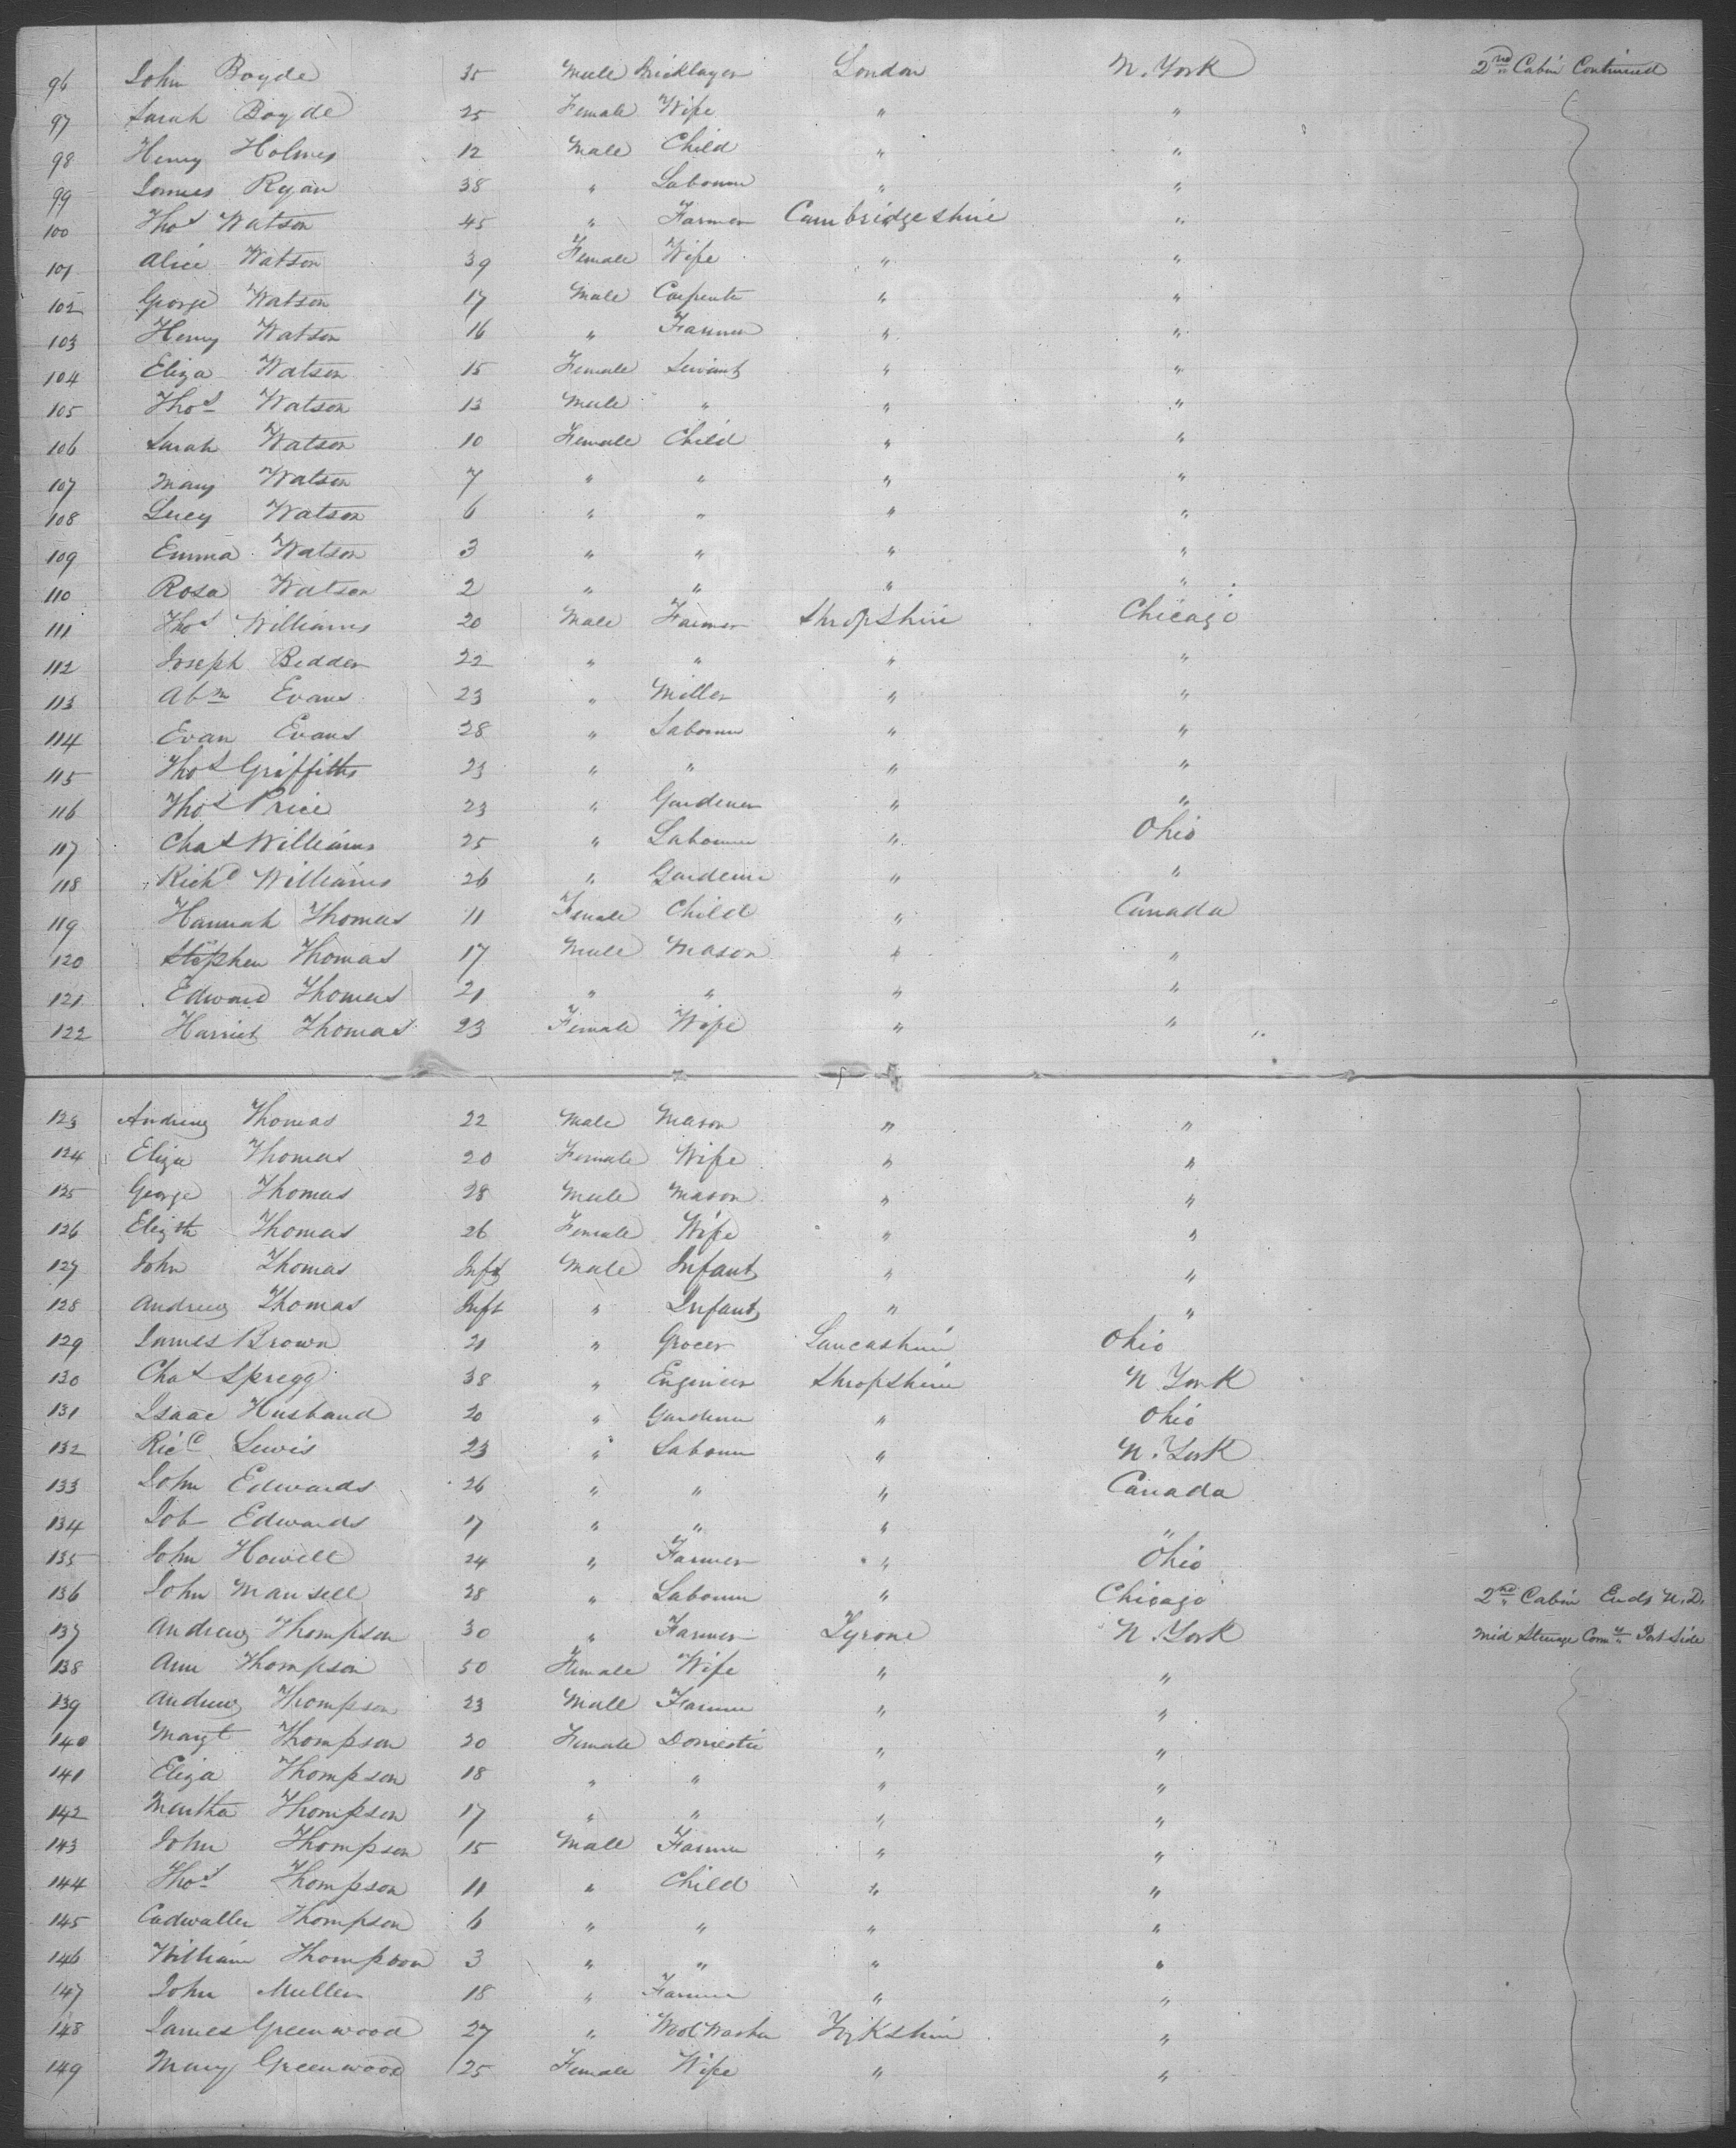 96 John Boyde 35 Male Bricklayer London N. York 2nd Cabin Continued
97 Sarah Boyde 25 Female Wife " "
98 Henry Holmes 12 Male Child " "
99 James Ryan 38 " Labourer " "
100 Thos Watson 45 " Farmer Cambridgeshire "
101 Alice Watson 39 Female Wife " "
102 George Watson 17 Male Carpenter " "
103 Henry Watson 16 " Farmer " "
104 Eliza Watson 15 Female Servant " "
105 Thos Watson 13 Male " " "
106 Sarah Watson 10 Female Child " "
107 Mary Watson 7 " " " "
108 Lucy Watson 6 " " " "
109 Emma Watson 3 " " " "
110 Rosa Watson 2 " " " "
111 Thos Williams 20 Male Farmer Shropshire Chicago
112 Joseph Bedder 22 " " " "
113 Abm Evans 23 " Miller " "
114 Evan Evans 28 " Labourer " "
115 Thos Griffiths 23 " " " "
116 Thos Price 23 " Gardener " "
117 Chas Williams 25 " Labourer " Ohio
118 Richd Williams 26 " Gardener " "
119 Hannah Thomas 11 Female Child " Canada
120 Stephen Thomas 17 Male Mason " "
121 Edward Thomas 21 " " " "
122 Harriet Thomas 23 Female Wife " "
123 Andrew Thomas 22 Male Mason " "
124 Eliza Thomas 20 Female Wife " "
125 George Thomas 28 Male Mason " "
126 Elizth Thomas 26 Female Wife " "
127 John Thomas Inft Male Infant " "
128 Andrew Thomas Inft " Infant " "
129 James Brown 21 " Grocer Lancashire Ohio
130 Chas Spregg 38 " Engineer Shropshire N York
131 Isaac Husband 20 " Gardener " Ohio
132 Ricd Lewis 23 " Labourer " N. York
133 John Edwards 26 " " " Canada
134 Job Edwards 17 " " " "
135 John Howell 24 " Farmer " Ohio
136 John Mansell 28 " Labourer " Chicago 2nd Cabin Ends U.D.
137 Andrew Thompson 30 " Farmer Tyrone N. York Mid Steerage Port Side
138 Ann Thompson 50 Female Wife " "
139 Andrew Thompson 23 Male Farmer " "
140 Margt Thompson 20 Female Domestic " "
141 Eliza Thompson 18 " " " "
142 Martha Thompson 17 " " " "
143 John Thompson 15 Male Farmer " "
144 Thos Thompson 11 " Child " "
145 Cadwaller Thompson 6 " " " "
146 William Thompson 3 " " " "
147 John Mullen 18 " Farmer " "
148 James Greenwood 27 " Wool Washer Yorkshire "
149 Mary Greenwood 25 Female Wife " "